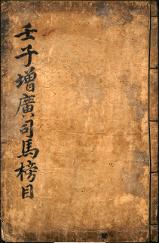 壬子增廣司馬榜目